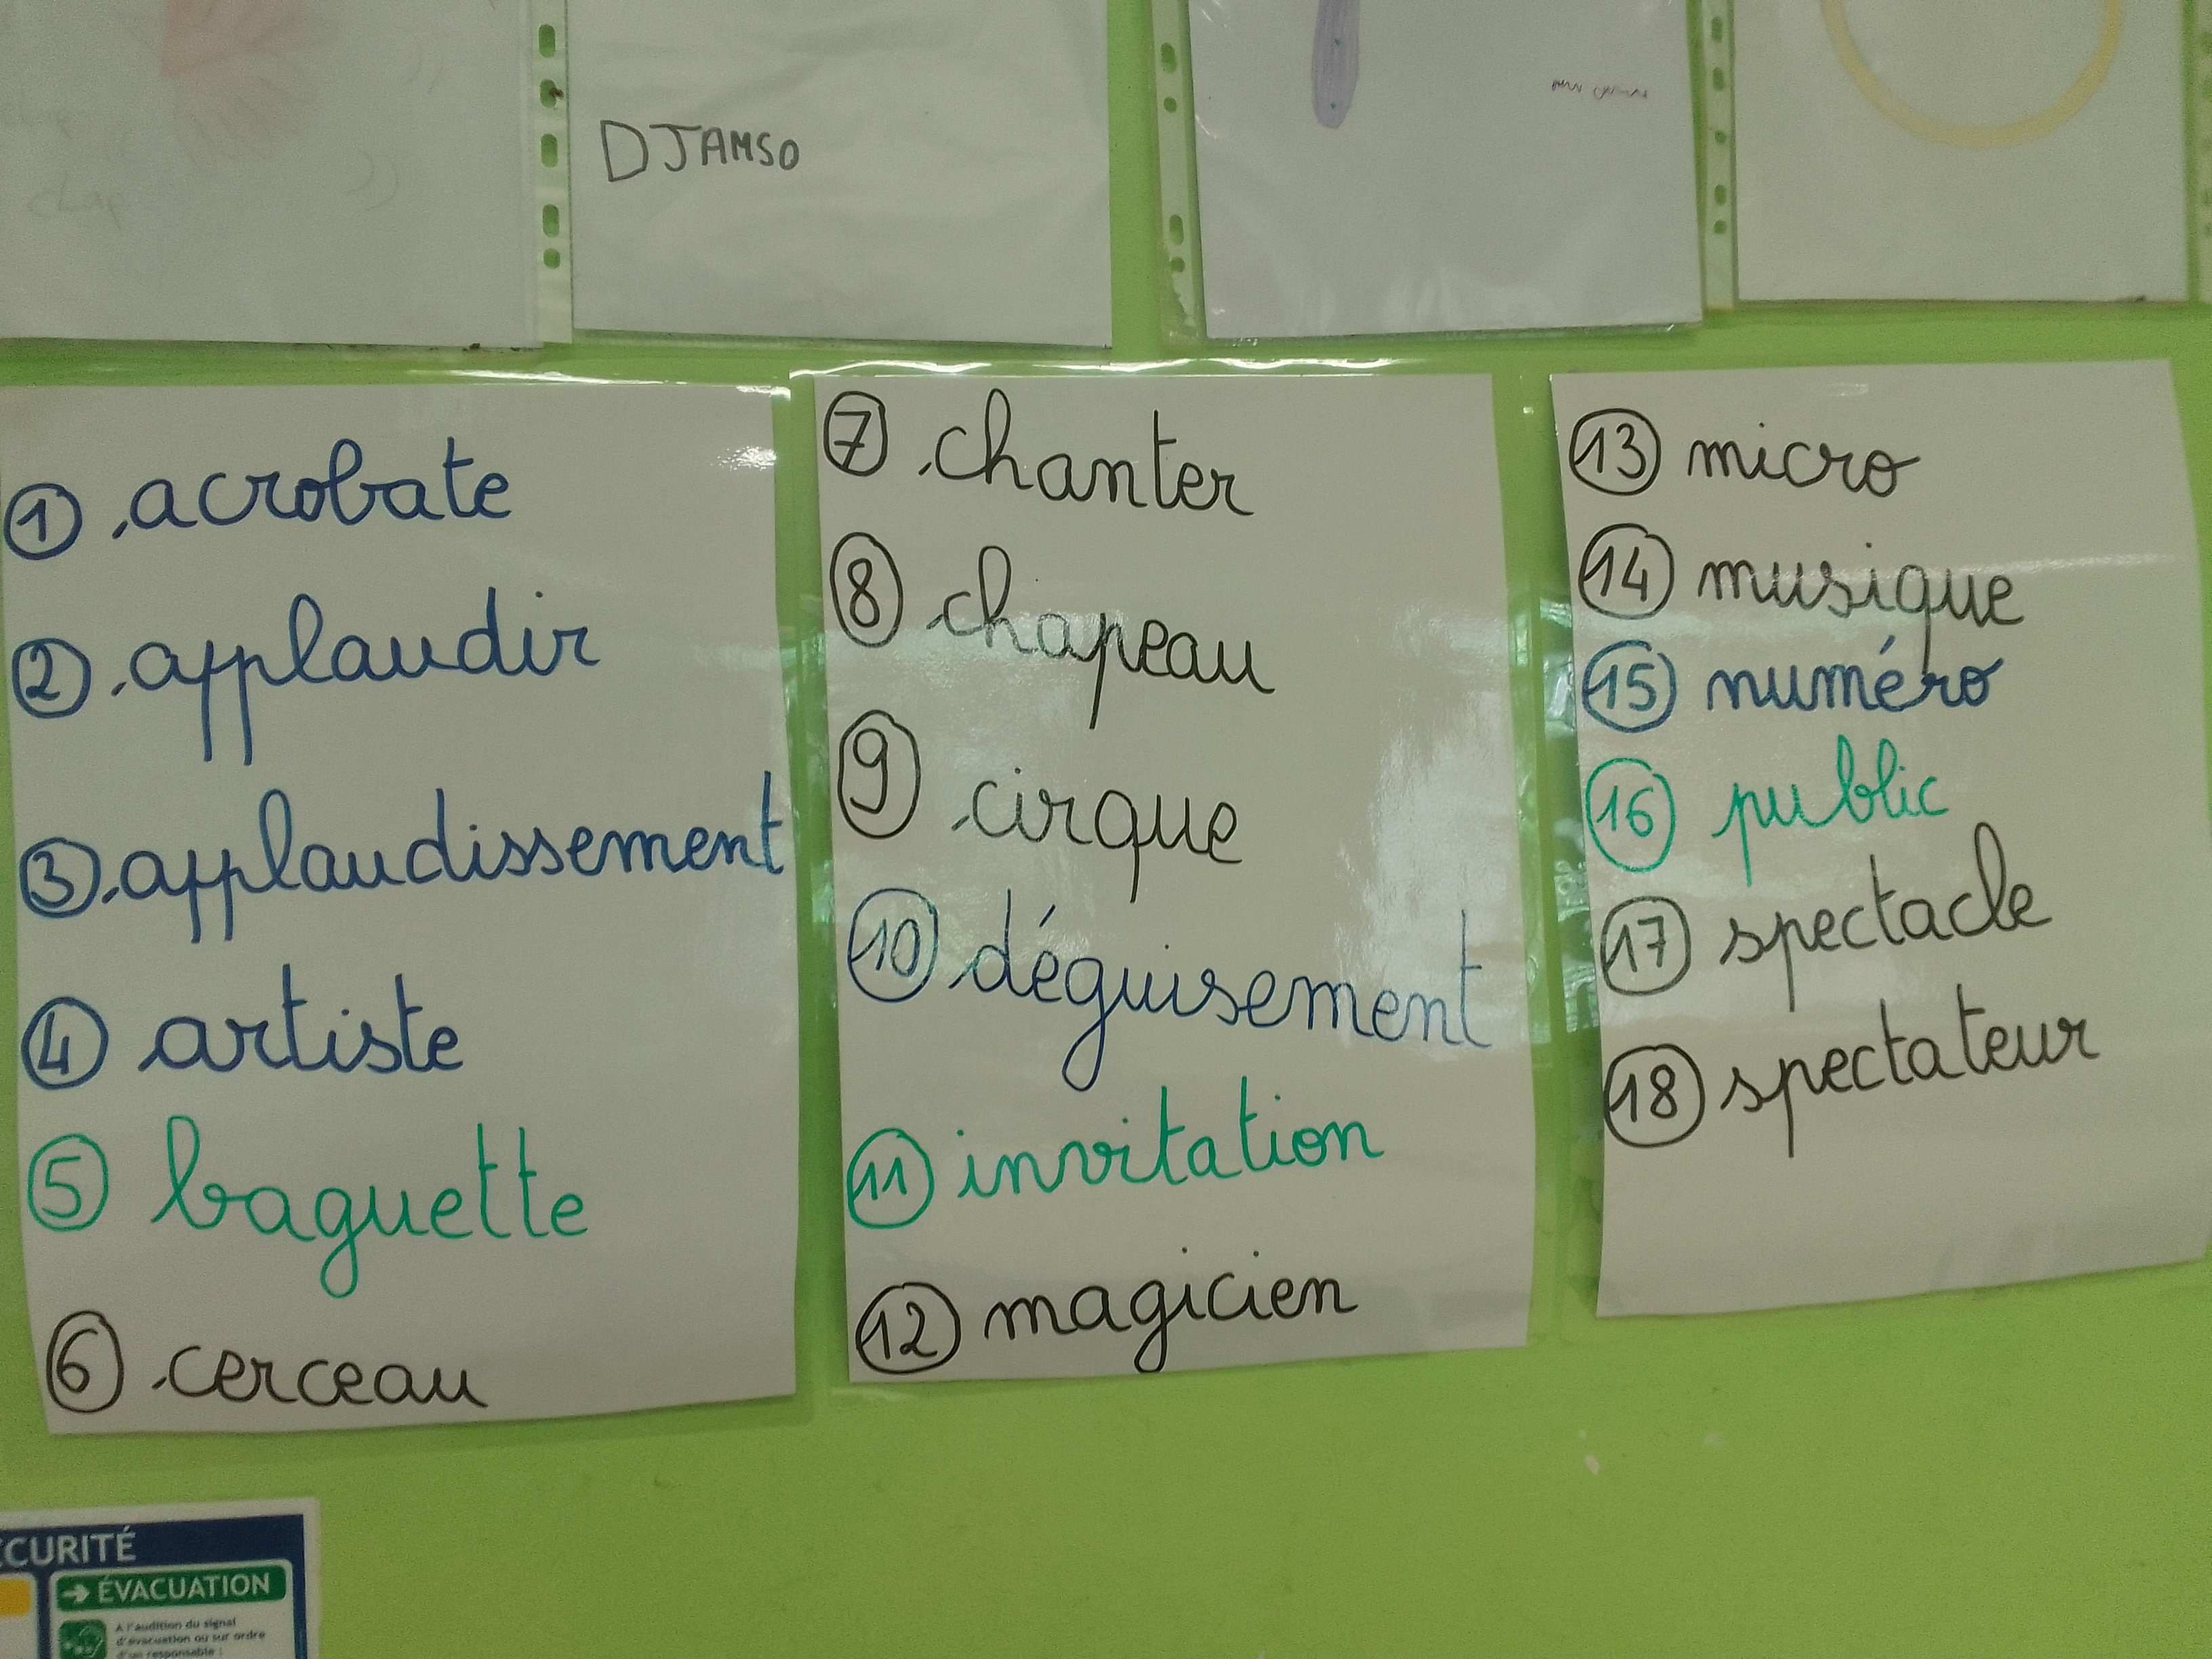 clap
DJAMSO
1 acrobate
2 applaudir
3 applaudissement
4 artiste
5 baguette
6 cerceau
7 chanter
8 chapeau
9 cirque
10 déguisement
11 invitation
12 magicien
13 micro
14 musique
15 numéro
16 public
17 spectacle
18 spectateur
CURITÉ
→ ÉVACUATION
A l'audition du signal
d'évacuation ou sur ordre
d'un responsable :